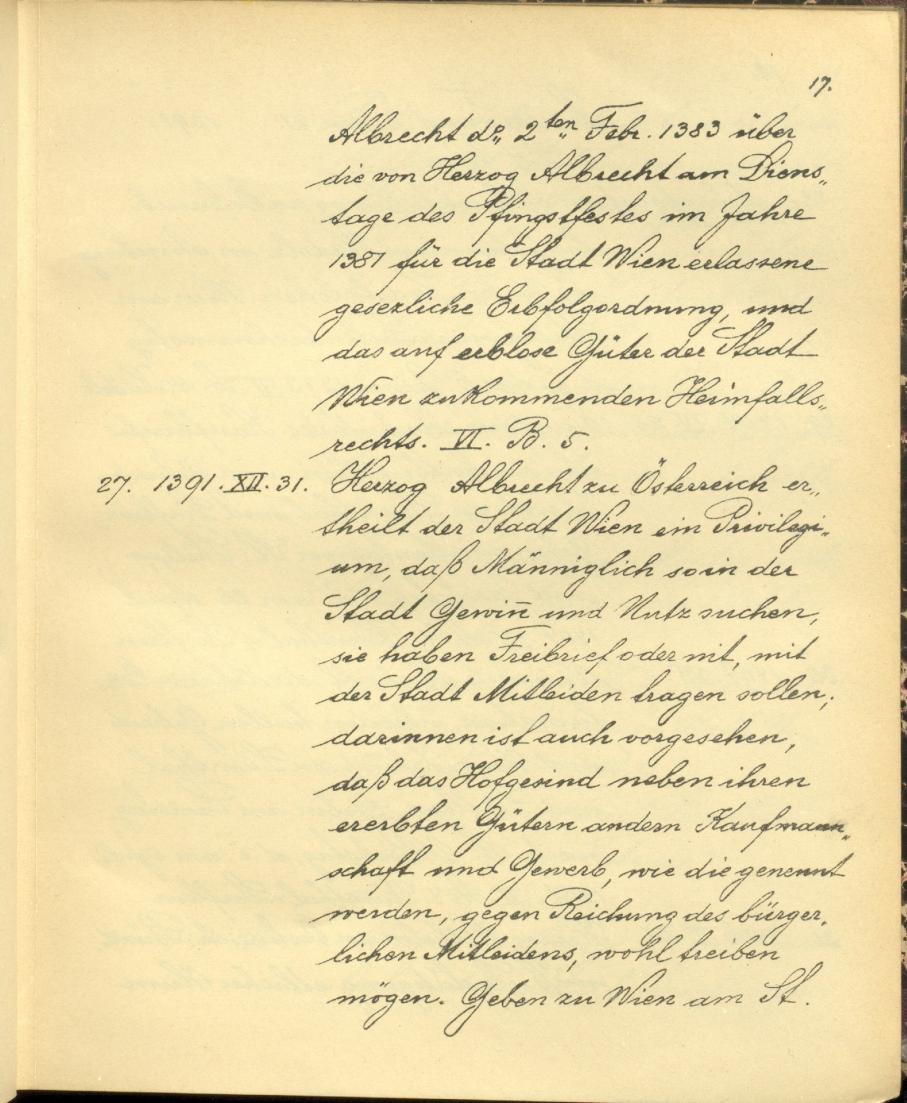 17.
Albrecht dº„ 2ten„ Febr. 1383 über
die von Herzog Albrecht am Diens„
tage des Pfingstfestes im Jahre
1381 für die Stadt Wien erlassene
gesezliche Erbfolgordnung, und
das auf erblose Güter der Stadt
Wien zukommenden Heimfalls„
rechts. VI. B. 5.
27. 1391. XII. 31. Herzog Albrecht zu Österreich er„
theilt der Stadt Wien ein Privilegi„
um, daß Männiglich so in der
Stadt Gewin̅ und Nutz suchen,
sie haben Freibrief oder nit, mit
der Stadt Mitleiden tragen sollen;
darinnen ist auch vorgesehen,
daß das Hofgesind neben ihren
ererbten Gütern andern Kaufmann„
schaft und Gewerb, wie die genennt
werden, gegen Reichung des bürger„
lichen Mitleidens, wohl treiben
mögen. Geben zu Wien am St.